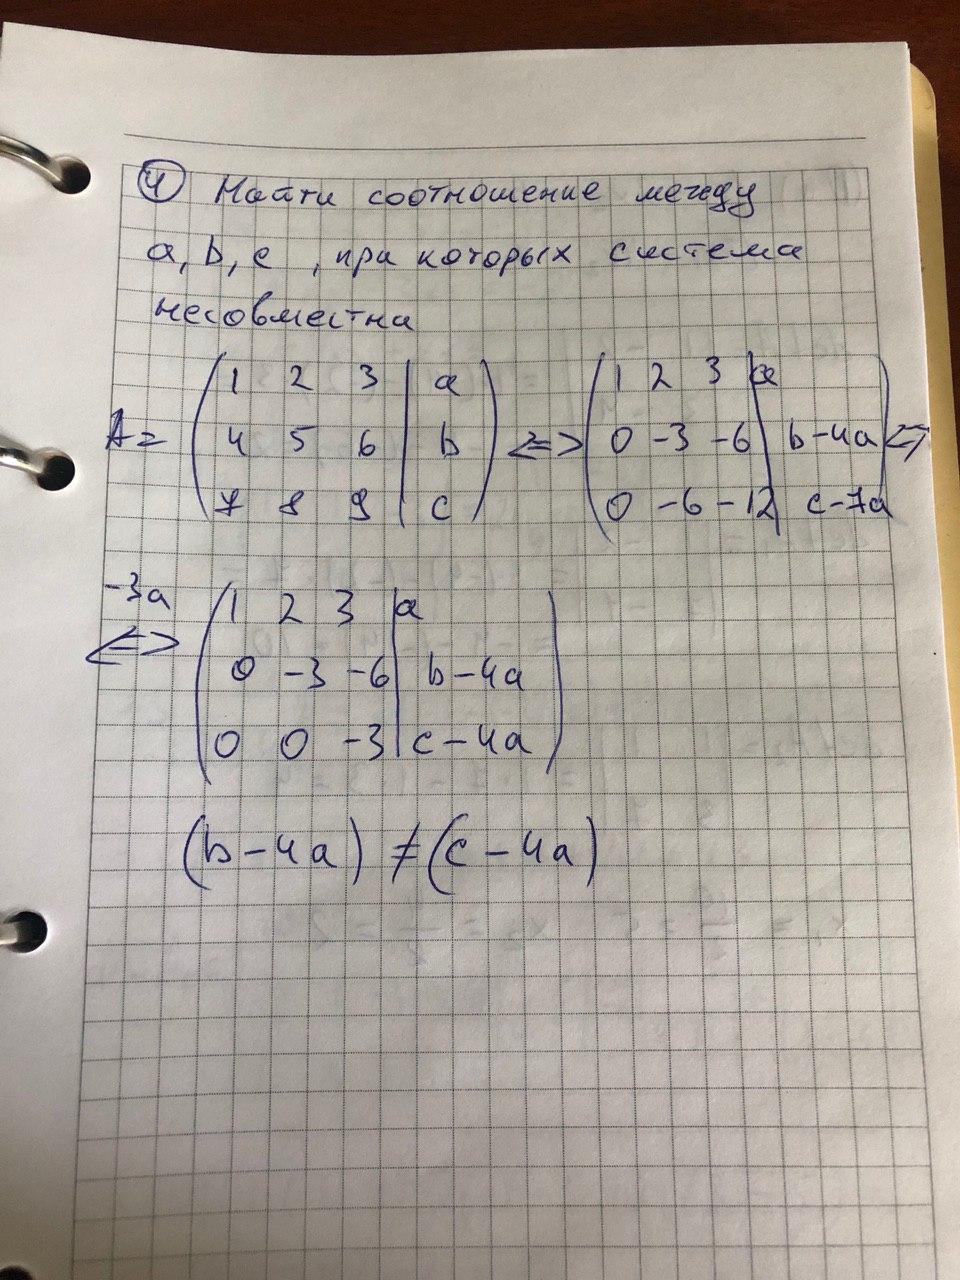 ④ Найти соотношение между
a, b, c , при которых система
несовместна
A = ( 1 2 3 | a ; 4 5 6 | b ; 7 8 9 | c ) <=> ( 1 2 3 | a ; 0 -3 -6 | b-4a ; 0 -6 -12 | c-7a ) <=>
-3a
<=> ( 1 2 3 | a ; 0 -3 -6 | b-4a ; 0 0 -3 | c-4a )
(b-4a) ≠ (c-4a)